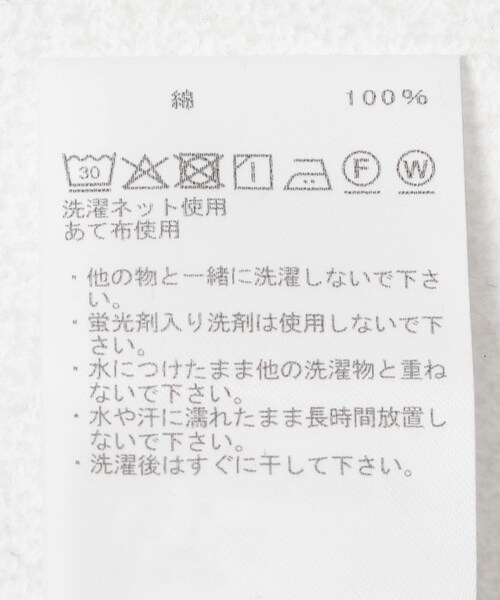 綿 100%
30 F W
洗濯ネット使用
あて布使用
・他の物と一緒に洗濯しないで下さ
い。
・蛍光剤入り洗剤は使用しないで下
さい。
・水につけたまま他の洗濯物と重ね
ないで下さい。
・水や汗に濡れたまま長時間放置し
ないで下さい。
・洗濯後はすぐに干して下さい。